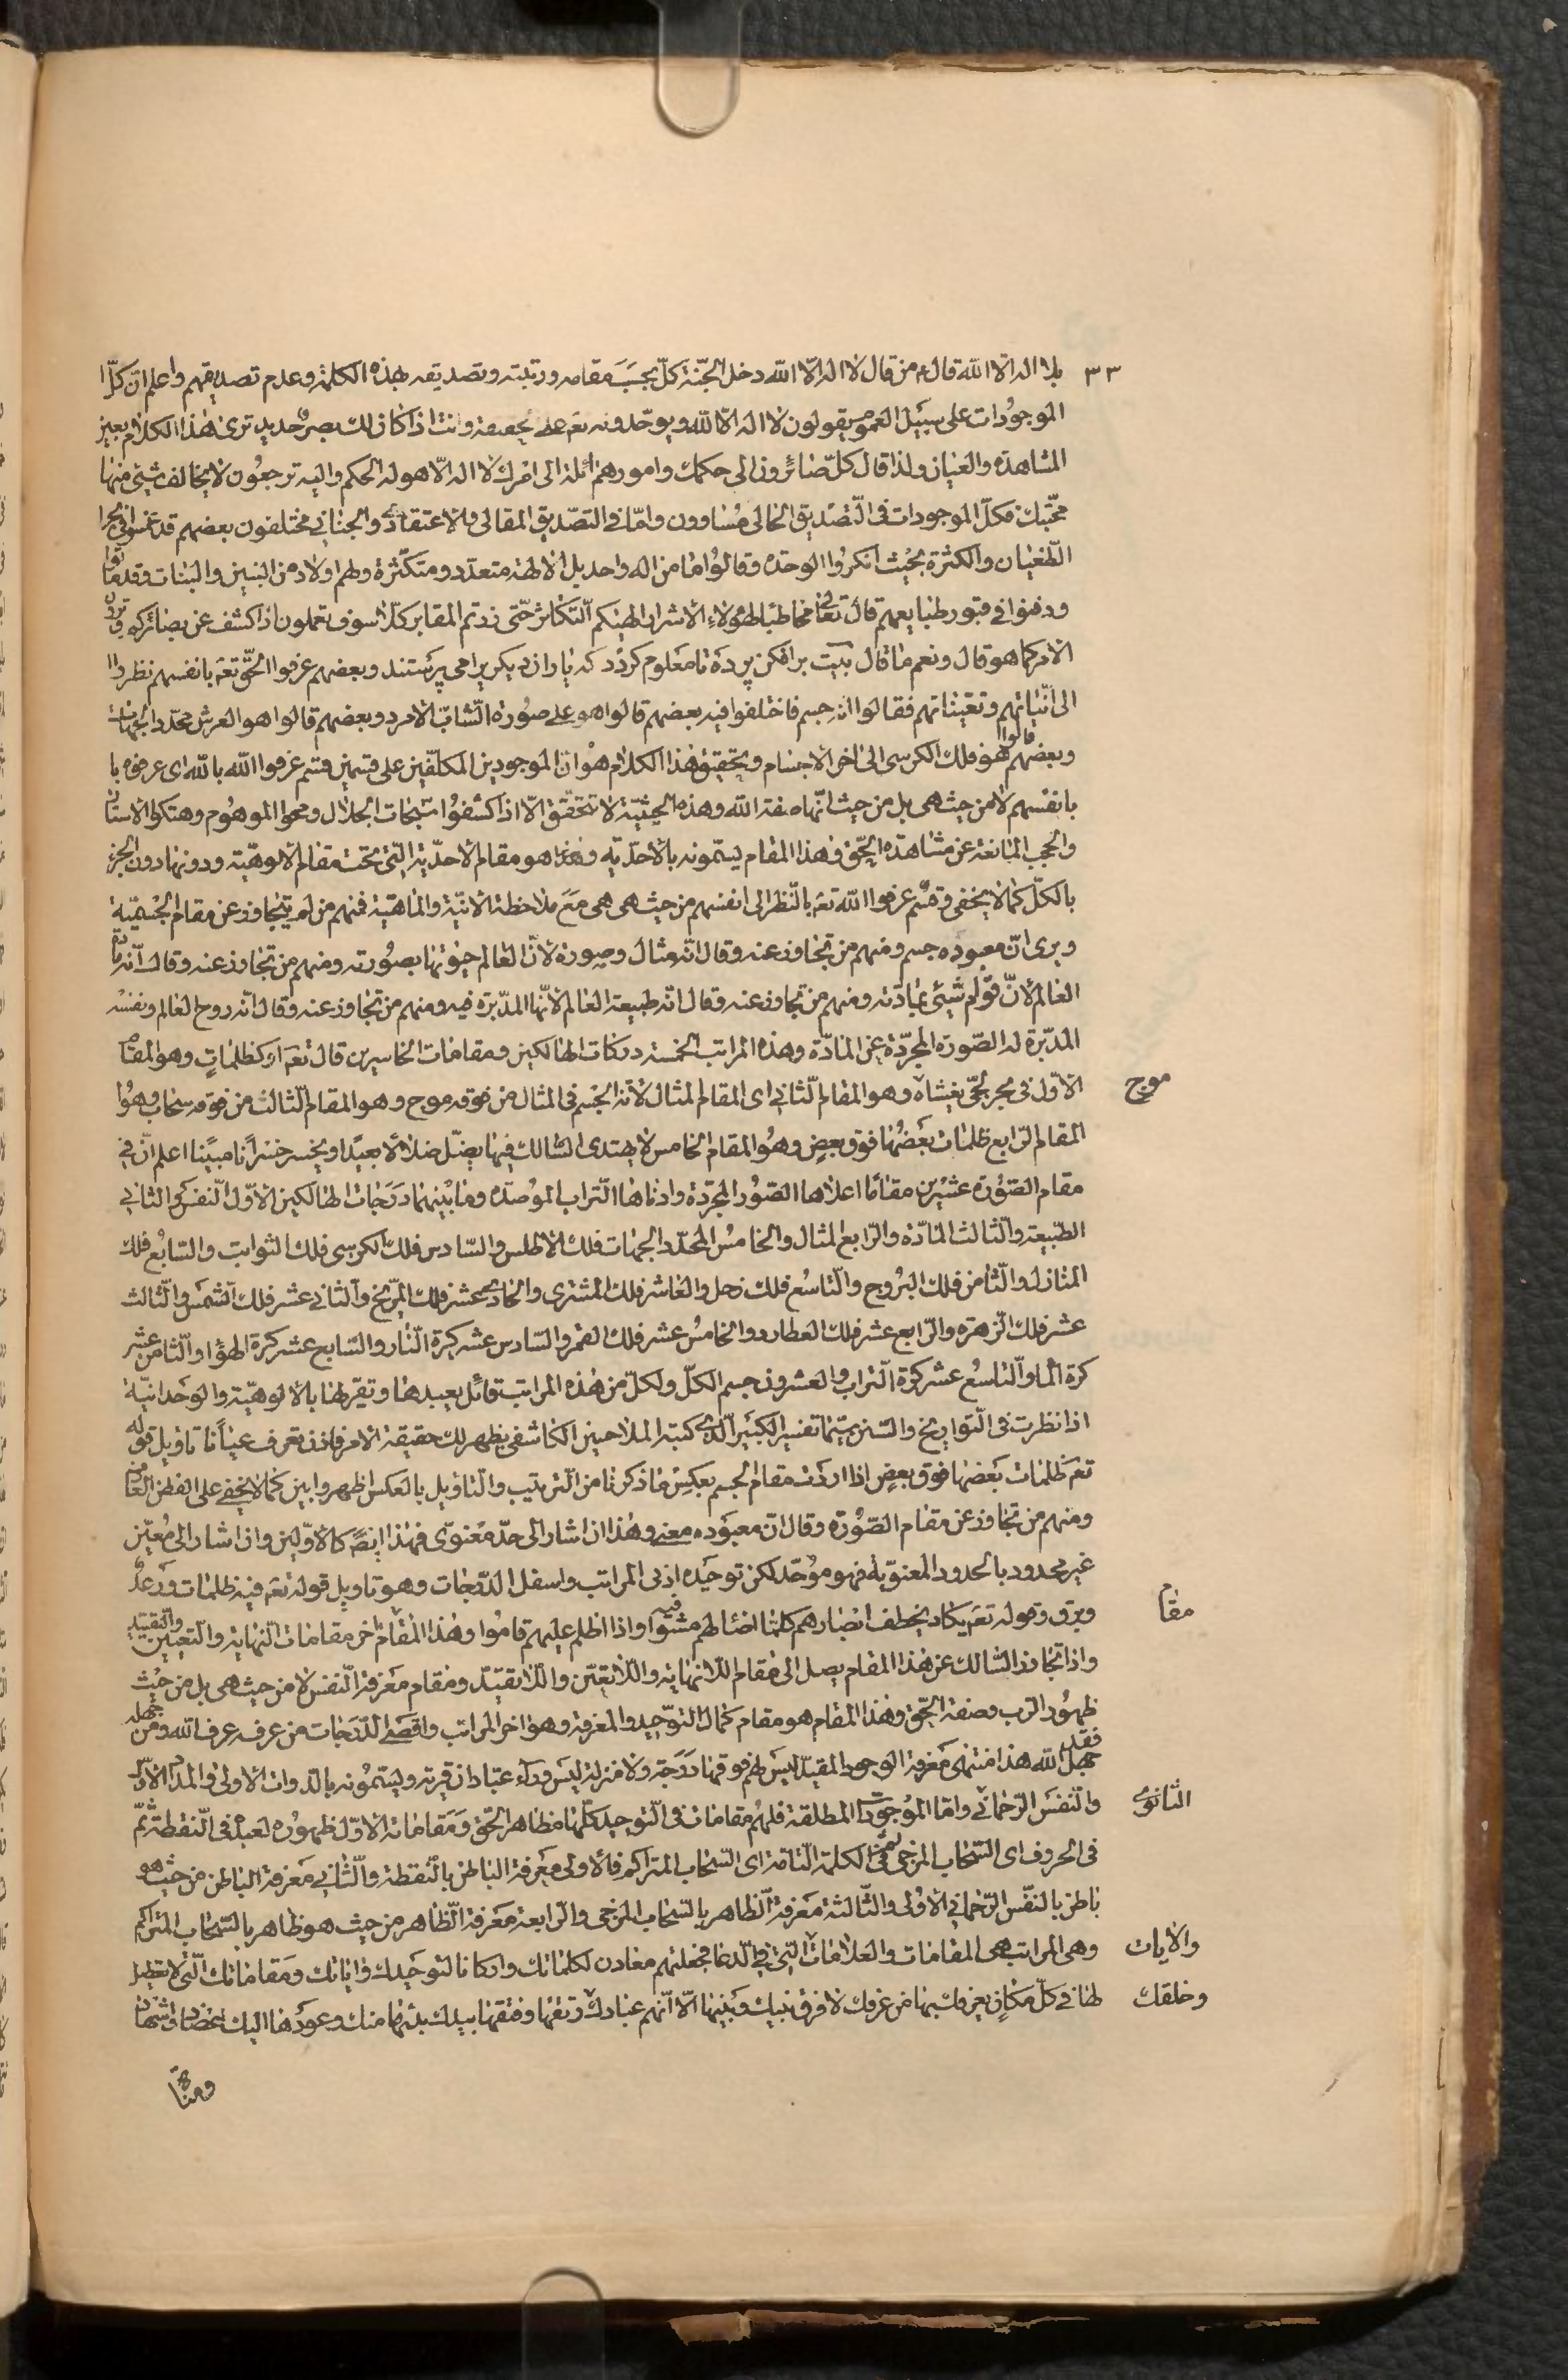 ٣٣
بلا اله الّا الله قال ٤ من قال لا اله الّا الله دخل الجنّة كلّ بحسب مقامه ورتبته وتصديقه بهذه الكلمة وعدم تصديقهم واعلم انّ كلّ ا
الموجودات على سبيل العموم يقولون لا اله الّا الله ويوحّدونه تعه على حقيقة وانت اذا كان لك بصر حديد ترى هذا الكلام بعين
المشاهدة والعيان ولذا قال كلّ صائرون الى حكمك وامورهم ائلة الى امرك لا اله الّا هو له الحكم واليه ترجعون لا يخالف شيئ منها
محبّتك فكلّ الموجودات في التصديق الحالى مساوون وامّا في التصديق المقالى والاعتقادى والجنانى مختلفون بعضهم قد غسوا في بحر ا
الطّغيان والكثرة بحيث انكروا الوحدة وقالوا ما من اله واحد بل الالهة متعدّد ومتكثّرة ولهم اولاد من البنين والبنات وقد ماتوا
ودفنوا في قبور طبايعهم قال تعالى مخاطبا لهؤلاء الاشرار الهيكم التكاثر حتّى زرتم المقابر كلّا سوف تعملون اذا كشف عن بصائركم وترون
الامر كما هو قال ونعم ما قال بيت برافكن پرده تا معلوم كردد كه ياران ديكريرا مى پرستند وبعضهم عرفوا الحقّ تعه بانفسهم نظر وا
الى انّيّاتهم وتعيّناتهم فقالوا انّه جسم فاختلفوا فيه بعضهم قالوا هو على صورة الشّابّ الامرد وبعضهم قالوا هو العرش محدّد الجهات
وبعضهم قالوا هو فلك الكرسى الى اخر الاجسام وتحقيق هذا الكلام هو انّ الموجودين المكلّفين على قسمين قسم عرفوا الله بالله اى عرفوه با
بانفسهم لا من حيث هى بل من حيث انّها صفة الله وهذه الحيثيّة لا تتحقّق الّا اذا كشفوا سبحات الجلال ومحوا الموهوم وهتكوا الاستار
والحجب المانعة عن مشاهدة الحقّ وهذا المقام يسمّونه بالاحدّية وهذا هو مقام الاحدّية الّتى تحت مقام الالوهيّة ودونها دون الجزء
بالكلّ كما لا يخفى وقسم عرفوا الله تعه بالنّظر الى انفسهم من حيث هى هى مع ملاحظة الانيّة والماهيّة فمنهم من لم يتجاوز عن مقام الجسميّة
ويرى انّ معبوده جسم ومنهم من تجاوز عنه وقال انّه مثال وصورة لانّ العالم حيوتها بصورته ومنهم من تجاوز عنه وقال انّه مادّة
العالم لانّ قوام شيئ بمادّته ومنهم من تجاوز عنه وقال انّه طبيعة العالم لانّها المدبّرة فيه ومنهم من تجاوز عنه وقال انّه روح العالم ونفسه
المدبّرة له الصّورة المجرّدة عن المادّة وهذه المراتب الخمسة دركات الهالكين ومقامات الخاسرين قال تعه او كظلماتٍ وهو المقام
الاوّل في بحر لجّى يغشاه وهو المقام الثّانى اى المقام المثال لانّه الجسم في المثال من فوقه موج وهو المقام الثّالث من فوقه سحاب وهو ا
موج
المقام الرّابع ظلمات بعضها فوق بعضٍ وهو المقام الخامس لا يهتدى السّالك فيها يضلّ ضلالًا بعيدًا ويخسر خسرانًا مبينًا اعلم انّ في
مقام الصّورة عشرين مقامًا اعلاها الصّور المجرّدة وادناها التّراب الموصدة وما بينهما درجات الهالكين الاوّل النّفس والثّانى
الطّبيعة والثّالث المادّة والرّابع المثال والخامس المحدّد الجهات فلك الاطلس والسّادس فلك الكرسى فلك الثوابت والسّابع فلك
المنازل والثّامن فلك البروج والتّاسع فلك زحل والعاشر فلك المشترى والحادى عشر فلك المرّيخ والثّانى عشر فلك الشّمس والثّالث
عشر فلك الزّهرة والرّابع عشر فلك العطارد والخامس عشر فلك القمر والسّادس عشر كرة النّار والسّابع عشر كرة الهواء والثّامن عشر
كرة الماء والتّاسع عشر كرة التّراب والعشرون جسم الكلّ ولكلّ من هذه المراتب قائل يعبدها وتقر لها بالالوهيّة والوحدانيّة
اذا نظرت في التّواريخ والسّنن سيّما تفسير الكبير الّذى كتبه الملّا حسين الكاشفى يظهر لك حقيقة الامر فاذن تعرف عيانًا تاويل قوله
تعه ظلمات بعضها فوق بعضٍ اذا اردت مقام الجسم بعكس ما ذكرنا من التّرتيب والتّاويل بالعكس اظهر وابين كما لا يخفى على الفطن العارف
ومنهم من تجاوز عن مقام الصّورة وقال انّ معبوده معنى وهذا ان اشار الى حدّ معنوّى فهذا ايضًا كالاوّلين وان اشار الى معيّن
غير محدود بالحدود المعنويّة فهو موحّد لكن توحيده ادنى المراتب واسفل الدّرجات وهو تاويل قوله تعه فيه ظلمات ورعد
وبرق وقوله تعه يكاد يخطف ابصارهم كلّما اضاء لهم مشوا فيه واذا اظلم عليهم قاموا وهذا المقام اخر مقامات النّهاية والتّعيين والتّقييد
مقام
واذا تجاوز السّالك عن هذا المقام يصل الى مقام اللّانهاية واللّاتعيّن واللّاتقيّد ومقام معرفة النّفس لا من حيث هى بل من حيث
ظهور الرّب وصفة الحقّ وهذا المقام هو مقام كمال التوّحيد والمعرفة وهو اخر المراتب واقصى الدّرجات من عرفه عرف الله ومن جهله
فقد جهل الله هذا منتهى معرفة الوجود المقيّد ليس لهم فوقها درجة ولا منزلة ليس وراء عبّادان قرية ويسمّونه بالذّوات الاولى والمداد الاوّل
والنّفس الرّحمانى وامّا الموجودات المطلقة فلهم مقامات في التّوحيد كلّها مظاهر الحقّ ومقاماته الاوّل ظهوره لعبده في النّقطة ثمّ
الثّانوى
في الحروف اى السّحاب المزجى ثمّ في الكلمة التّامّة اى السّحاب المتراكم فالاولى معرفة الباطن بالنّقطة والثّانى معرفة الباطن من حيث هو
باطن بالنّفس الرّحمانى الاولى والثّالثة معرفة الظّاهر بالسّحاب المزجى والرّابعة معرفة الظّاهر من حيث هو ظاهر بالسّحاب المتراكم
وهى المراتب هى المقامات والعلامات الّتى في الدّعا فجعلتهم معادن لكلماتك واركانا لتوحيدك واياتك ومقاماتك الّتى لا تعطيل
والايات
لها في كلّ مكانٍ يعرفك بها من عرفك لا فرق بينك وبينها الّا انّهم عبادك رتقها وفتقها بيدك بدئها منك وعودها اليك اعضاد واشهاد
وخلقك
ومناة